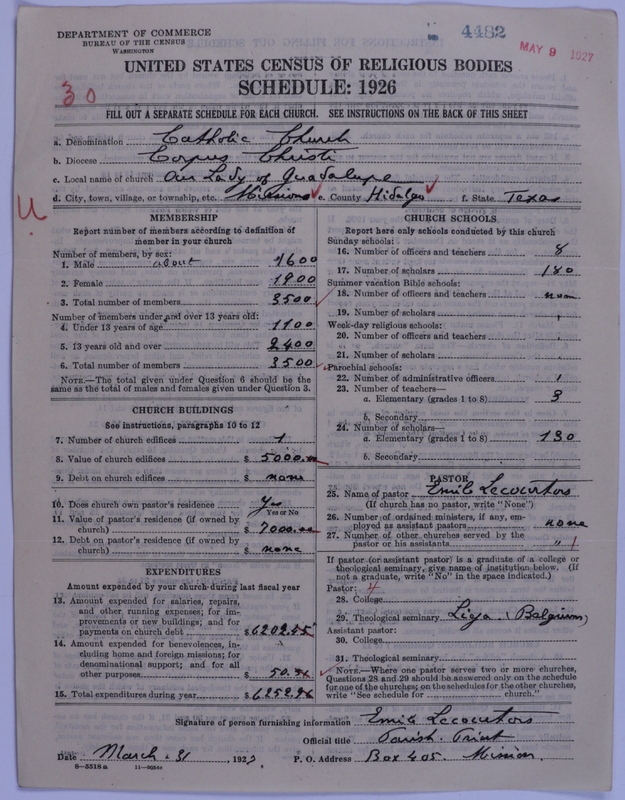 DEPARTMENT OF COMMERCE
BUREAU OF THE CENSUS
WASHINGTON
4482
MAY 9 1927
UNITED STATES CENSUS OF RELIGIOUS BODIES
SCHEDULE: 1926
30
FILL OUT A SEPARATE SCHEDULE FOR EACH CHURCH. SEE INSTRUCTIONS ON THE BACK OF THIS SHEET
a. Denomination Catholic Church
b. Diocese Corpus Christi
c. Local name of church Our Lady of Guadalupe
d. City, town, village, or township, etc. Mission e. County Hidalgo f. State Texas
U
MEMBERSHIP
Report number of members according to definition of
member in your church
Number of members, by sex:
1. Male about 1600
2. Female 1900
3. Total number of members 3500
Number of members under and over 13 years old:
4. Under 13 years of age 1100
5. 13 years old and over 2400
6. Total number of members 3500
NOTE.—The total given under Question 6 should be the
same as the total of males and females given under Question 3.
CHURCH BUILDINGS
See instructions, paragraphs 10 to 12
7. Number of church edifices 1
8. Value of church edifices $ 5000.00
9. Debt on church edifices $ none
10. Does church own pastor's residence Yes
Yes or No
11. Value of pastor's residence (if owned by
church) $ 7000.00
12. Debt on pastor's residence (if owned by
church) $ none
EXPENDITURES
Amount expended by your church during last fiscal year
13. Amount expended for salaries, repairs,
and other running expenses; for im-
provements or new buildings; and for
payments on church debt $ 6202.45
14. Amount expended for benevolences, in-
cluding home and foreign missions; for
denominational support; and for all
other purposes $ 50.51
15. Total expenditures during year $ 6252.96
CHURCH SCHOOLS
Report here only schools conducted by this church
Sunday schools:
16. Number of officers and teachers 8
17. Number of scholars 180
Summer vacation Bible schools:
18. Number of officers and teachers none
19. Number of scholars
Week-day religious schools:
20. Number of officers and teachers
21. Number of scholars
Parochial schools:
22. Number of administrative officers 1
23. Number of teachers—
a. Elementary (grades 1 to 8) 3
b. Secondary
24. Number of scholars—
a. Elementary (grades 1 to 8) 130
b. Secondary
PASTOR
25. Name of pastor Emile Lecourtois
(If church has no pastor, write "None")
26. Number of ordained ministers, if any, em-
ployed as assistant pastors none
27. Number of other churches served by the
pastor or his assistants " 1
If pastor (or assistant pastor) is a graduate of a college or
theological seminary, give name of institution below. (If
not a graduate, write "No" in the space indicated.)
Pastor: 4
28. College
29. Theological seminary (Belgium)
Assistant pastor:
30. College
31. Theological seminary
NOTE.—Where one pastor serves two or more churches,
Questions 28 and 29 should be answered only on the schedule
for one of the churches; on the schedules for the other churches,
write "See schedule for church."
Signature of person furnishing information Emile Lecourtois
Official title Parish Priest
Date March 31, 1927 P. O. Address Box 405. Mission.
8—5518a